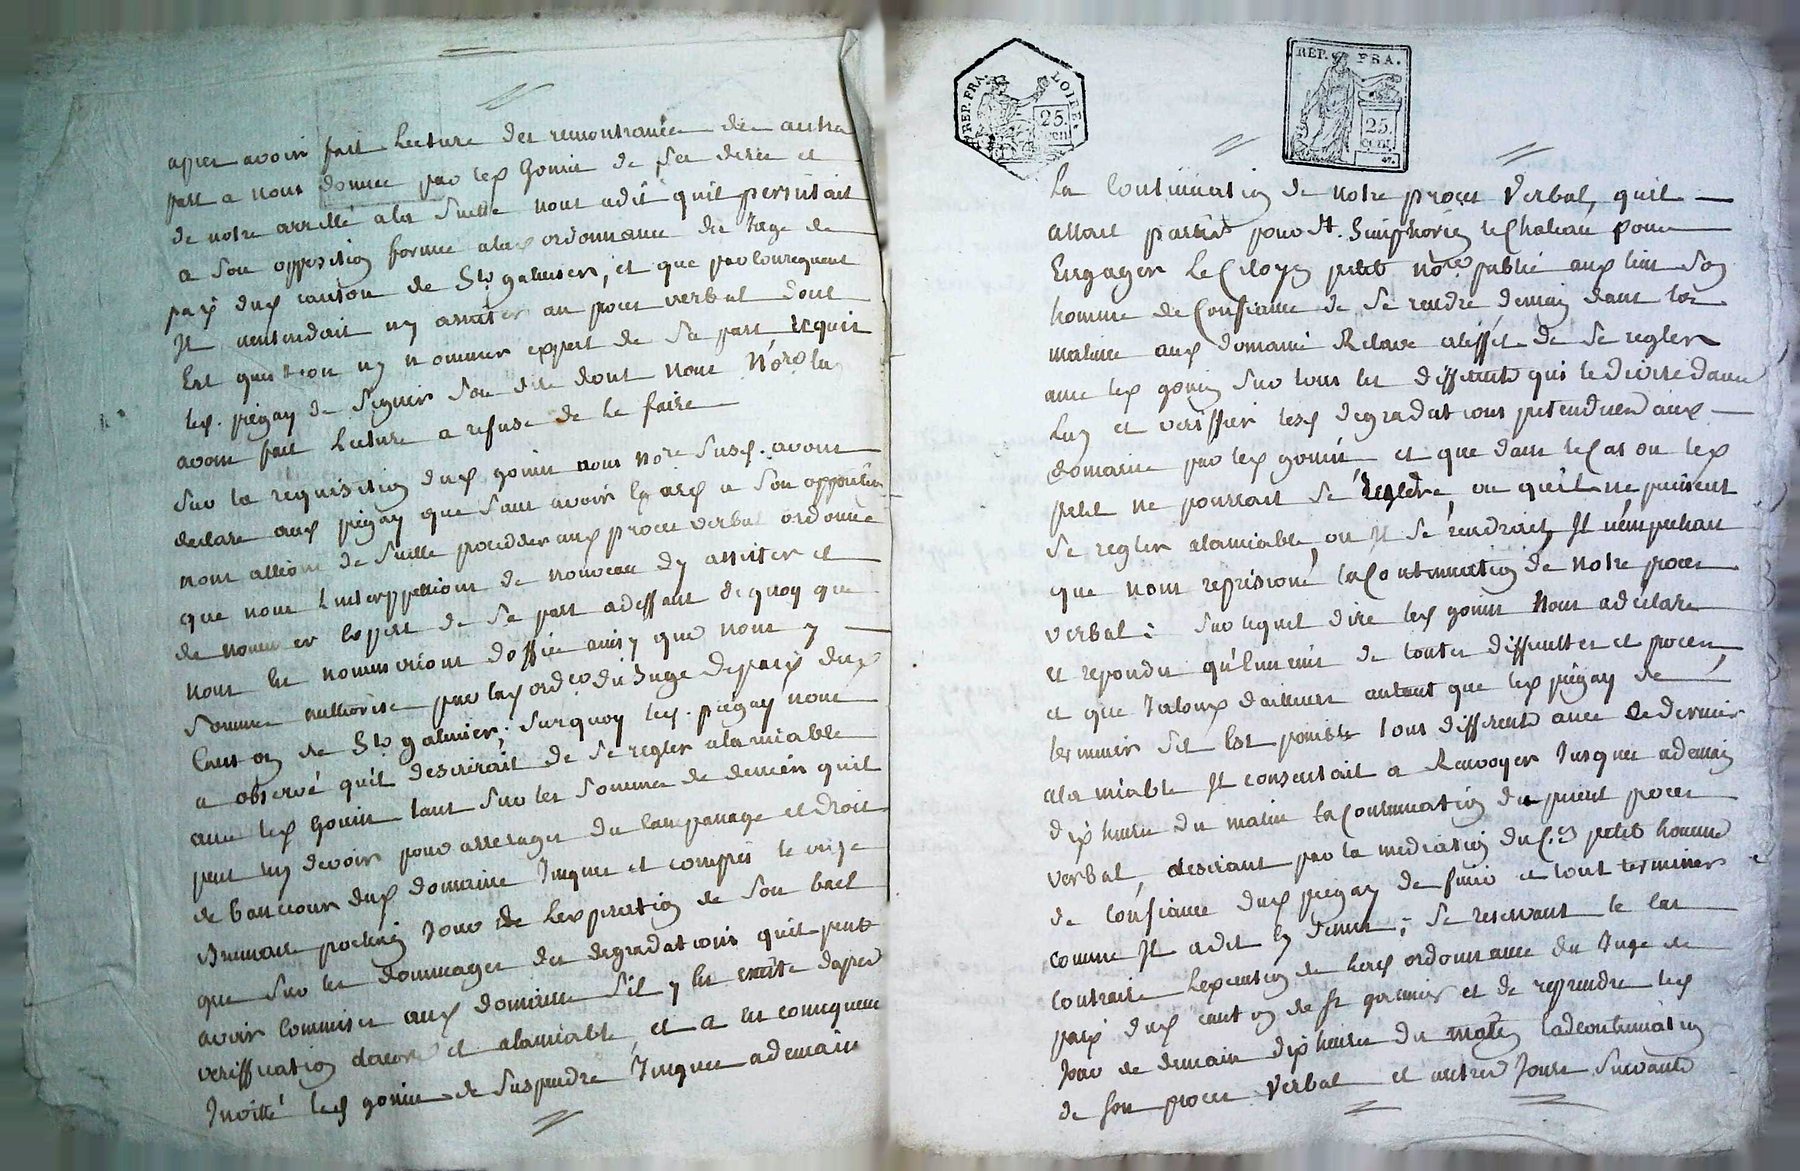 apres avoir fait Lecture des remontrances des autre
part a nous donnee par led Gonin de ses dires et
de notre arrellé ala suitte nous a dit quil persistait
a son opposition formee alad ordonnance du Juge de
paix dud canton de St galmier, et que par consequent
Il nentendait ny assister au proces verbal dont
Est question ny nommer expert de sa part requis
led. piegay de signer son dire dont nous No.re luy
avons fait Lecture a refusé de le faire
Sur la requisition dud gonin nous No.re susd. avons
declare aud piegay que sans avoir Egard a son opposition
nous allions de suitte proceder aud proces verbal ordonné
que nous Linterppellions de nouveau dy assister et
de nommer Expert de sa part adeffaut de quoy que
nous les nommerions doffice ainsy que nous y
sommes authorisé par lad ord.ce du Juge de paix dud
Canton de St galmier; surquoy led. piegay nous
a observé quil desirerait de se regler alamiable
avec led Gonin tant sur les sommes de deniers quil
peut luy devoir pour arrerages du
de dud domaine Jusques et compris le onze
Brumaire prochain Jour de Lexpiration de son bail
que sur les dommages des degradations quil peut
avoir commises aud domaine sil y En existe dapres
veriffication et alamiable, et a En consequence
Invitté led gonin de suspendre Jusques a demain
REP. FRA. LOIRE. 25. cen
REP. FRA. 25. cen
La Continuation de notre proces Verbal, quil
allait partir pour St. Simphorien le Chateau pour
Engager Le Citoyen petit No.re publié aud lieu son
homme de Confiance de se rendre demain dans la
matinée aud domaine Relave aleffet de se regler
avec led gonin sur tous les differents qui le divise davec
Luy et veriffier lesd degradations pretendues aud
domaine par led gonin et que dans le Cas ou led
petit ne pourrait se rendre ou quil ne puissent
se regler alamiable, ou Il se rendrait, Il nempechait
que nous reprisions la Continuation de notre proces
verbal: sur lequel dire led gonin Nous a declaré
et repondu quEnnemi de toutes difficultés et proces
et que Jaloux dailleurs autant que led piegay de
terminer sil Est possible tous differents avec ce dernier
alamiable Il consentait a Renvoyer Jusques a demain
dix heures du matin la Continuation du present proces
verbal, desirant par la mediation du C.en petit homme
de confiance dud piegay de finir et tout terminer
comme Il a dit En dernier; se reservant le cas
contraire Lexecution de lad ordonnance du Juge de
paix dud canton de St galmier et de reprendre led
Jour de demain dix heures du matin la Continuation
de son proces Verbal et autres Jours suivants